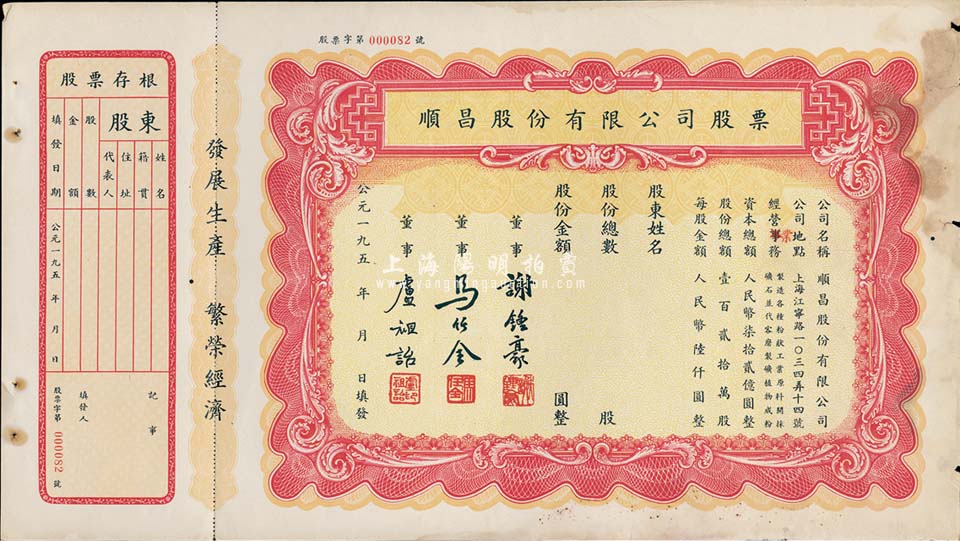 股票字第 000082 號
順昌股份有限公司股票
公司名稱 順昌股份有限公司
公司地點 上海江寧路一〇三四弄十四號
經營業務 製造各種粉狀工業原料開採
礦石並代客磨製礦植物成粉
資本總額 人民幣柒拾貳億圓整
股份總額 壹百貳拾萬股
每股金額 人民幣陸仟圓整
股東姓名
股份總數 股
股份金額 圓整
董事 謝鍾豪
董事 馬竹全
董事 盧祖詒
公元一九五 年 月 日填發
發展生產 繁榮經濟
股票存根
股東
姓名
籍貫
住址
代表人
股數
金額
填發日期 公元一九五 年 月 日
記事
填發人
股票字第 000082 號
上海陽明拍賣